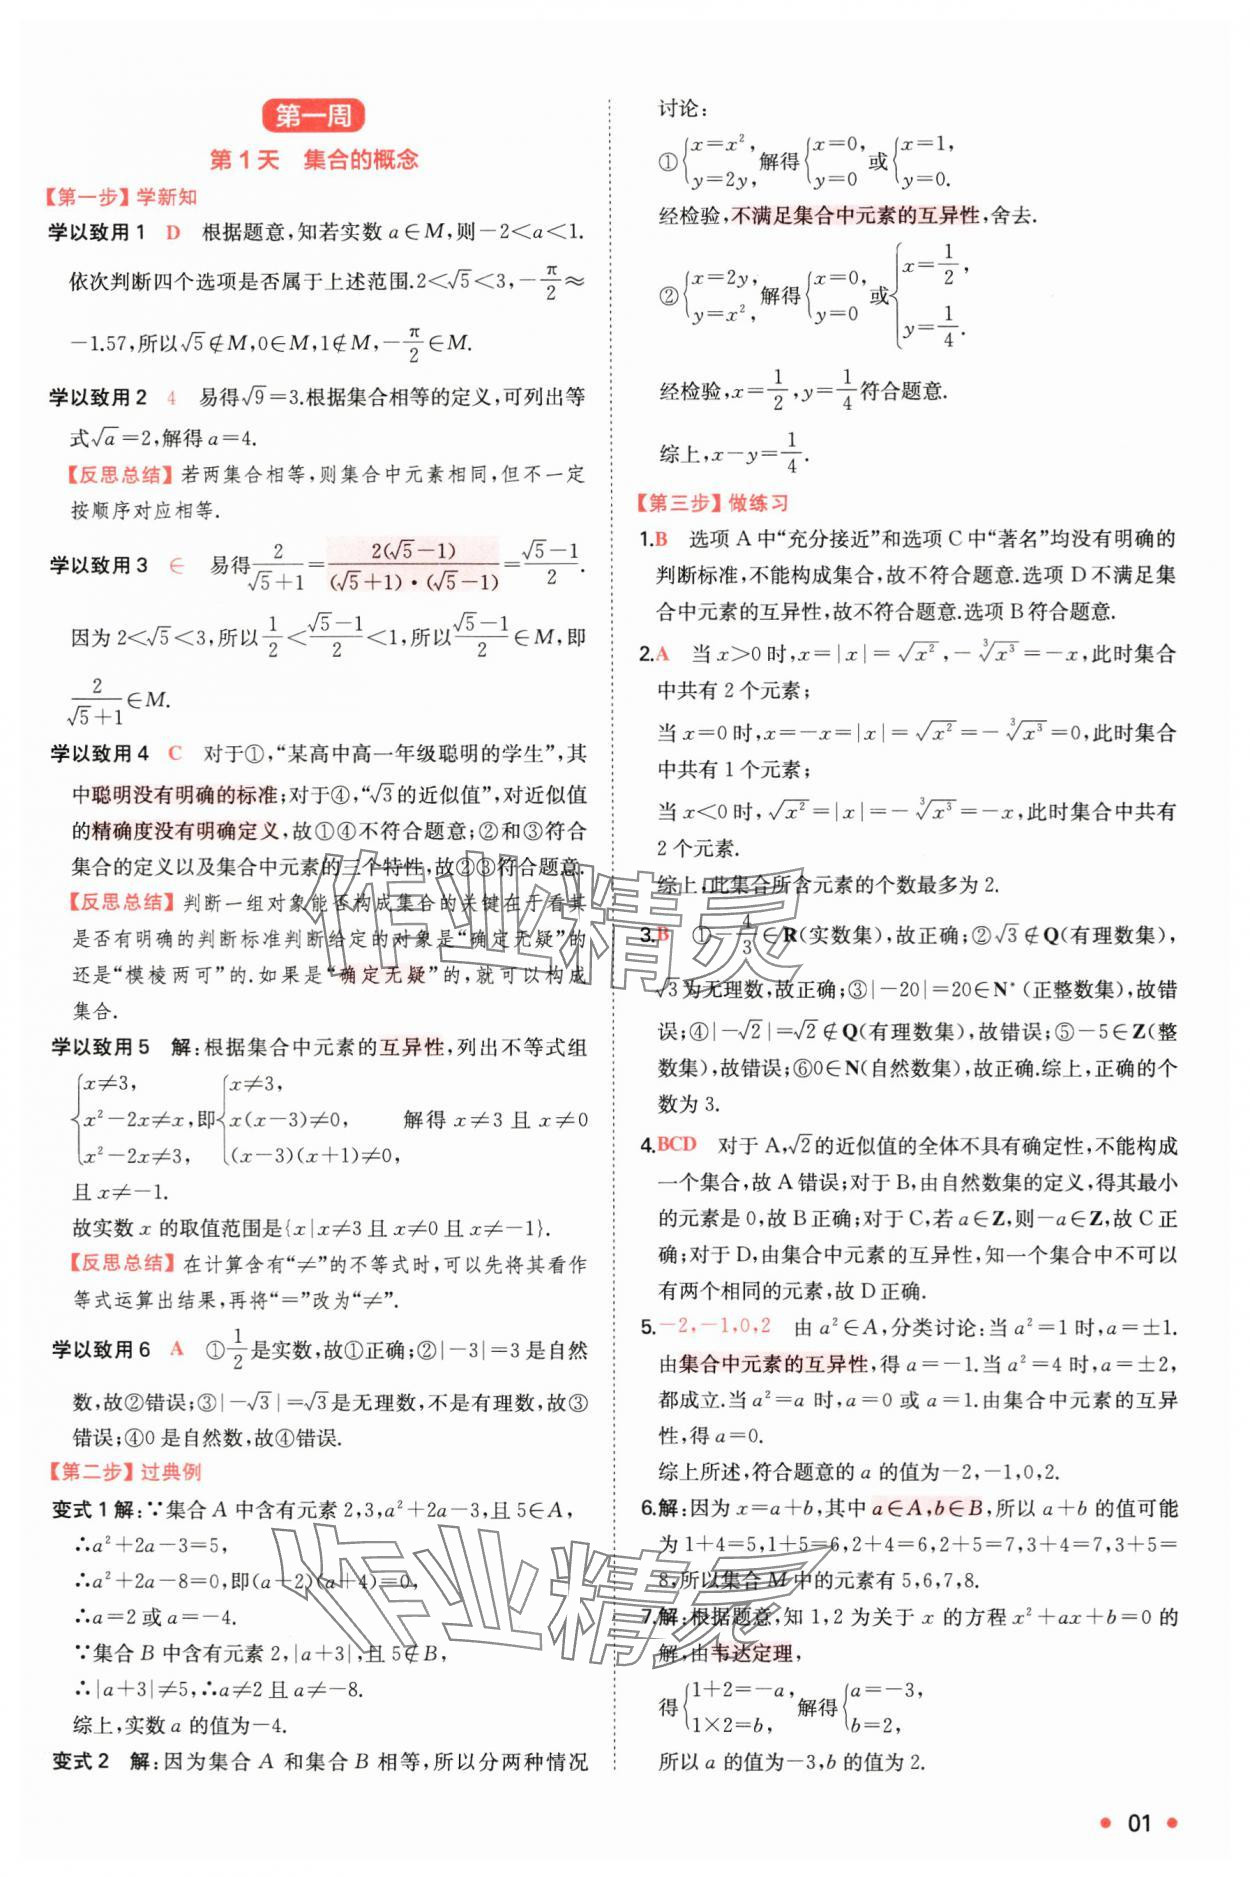 第一周
第1天 集合的概念
【第一步】学新知
学以致用1 D 根据题意,知若实数a∈M,则-2<a<1.
依次判断四个选项是否属于上述范围.2<√5<3,-π/2≈
-1.57,所以√5∉M,0∈M,1∉M,-π/2∈M.
学以致用2 4 易得√9=3.根据集合相等的定义,可列出等
式√a=2,解得a=4.
【反思总结】若两集合相等,则集合中元素相同,但不一定
按顺序对应相等.
学以致用3 ∈ 易得2/(√5+1)=2(√5-1)/((√5+1)·(√5-1))=(√5-1)/2.
因为2<√5<3,所以1/2<(√5-1)/2<1,所以(√5-1)/2∈M,即
2/(√5+1)∈M.
学以致用4 C 对于①,“某高中高一年级聪明的学生”,其
中聪明没有明确的标准;对于④,“√3的近似值”,对近似值
的精确度没有明确定义,故①④不符合题意;②和③符合
集合的定义以及集合中元素的三个特性,故②③符合题意.
【反思总结】判断一组对象能否构成集合的关键在于看其
是否有明确的判断标准判断给定的对象是“确定无疑”的
还是“模棱两可”的.如果是“确定无疑”的,就可以构成
集合.
学以致用5 解:根据集合中元素的互异性,列出不等式组
{x≠3, x²-2x≠x, x²-2x≠3, 即{x≠3, x(x-3)≠0, (x-3)(x+1)≠0, 解得x≠3且x≠0
且x≠-1.
故实数x的取值范围是{x|x≠3且x≠0且x≠-1}.
【反思总结】在计算含有“≠”的不等式时,可以先将其看作
等式运算出结果,再将“=”改为“≠”.
学以致用6 A ①1/2是实数,故①正确;②|-3|=3是自然
数,故②错误;③|-√3|=√3是无理数,故③
错误;④0是自然数,故④错误.
【第二步】过典例
变式1 解:∵集合A中含有元素2,3,a²+2a-3,且5∈A,
∴a²+2a-3=5,
∴a²+2a-8=0,即(a-2)(a+4)=0,
∴a=2或a=-4.
∵集合B中含有元素2,|a+3|,且5∉B,
∴|a+3|≠5,∴a≠2且a≠-8.
综上,实数a的值为-4.
变式2 解:因为集合A和集合B相等,所以分两种情况
讨论:
①{x=x², y=2y, 解得{x=0, y=0 或{x=1, y=0.
经检验,不满足集合中元素的互异性,舍去.
②{x=2y, y=x², 解得{x=0, y=0 或{x=1/2, y=1/4.
经检验,x=1/2,y=1/4符合题意.
综上,x-y=1/4.
【第三步】做练习
1.B 选项A中“充分接近”和选项C中“著名”均没有明确的
判断标准,不能构成集合,故不符合题意.选项D不满足集
合中元素的互异性,故不符合题意.选项B符合题意.
2.A 当x>0时,x=|x|=√x²,-∛x³=-x,此时集合
中共有2个元素;
当x=0时,x=-x=|x|=√x²=-∛x³=0,此时集合
中共有1个元素;
当x<0时,√x²=|x|=-∛x³=-x,此时集合中共有
2个元素.
综上,此集合所含元素的个数最多为2.
3.B ①-4/3∈R(实数集),故正确;②√3∉Q(有理数集),
√3为无理数,故正确;③|-20|=20∈N*(正整数集),故错
误;④|-√2|=√2∉Q(有理数集),故错误;⑤-5∈Z(整
数集),故错误;⑥0∈N(自然数集),故正确.综上,正确的个
数为3.
4.BCD 对于A,√2的近似值的全体不具有确定性,不能构成
一个集合,故A错误;对于B,由自然数集的定义,得其最小
的元素是0,故B正确;对于C,若a∈Z,则-a∈Z,故C正
确;对于D,由集合中元素的互异性,知一个集合中不可以
有两个相同的元素,故D正确.
5.-2,-1,0,2 由a²∈A,分类讨论:当a²=1时,a=±1.
由集合中元素的互异性,得a=-1.当a²=4时,a=±2,
都成立.当a²=a时,a=0或a=1.由集合中元素的互异
性,得a=0.
综上所述,符合题意的a的值为-2,-1,0,2.
6.解:因为x=a+b,其中a∈A,b∈B,所以a+b的值可能
为1+4=5,1+5=6,2+4=6,2+5=7,3+4=7,3+5=
8,所以集合M中的元素有5,6,7,8.
7.解:根据题意,知1,2为关于x的方程x²+ax+b=0的
解,由韦达定理,
得{1+2=-a, 1×2=b, 解得{a=-3, b=2,
所以a的值为-3,b的值为2.
01
作业精灵
作业精灵